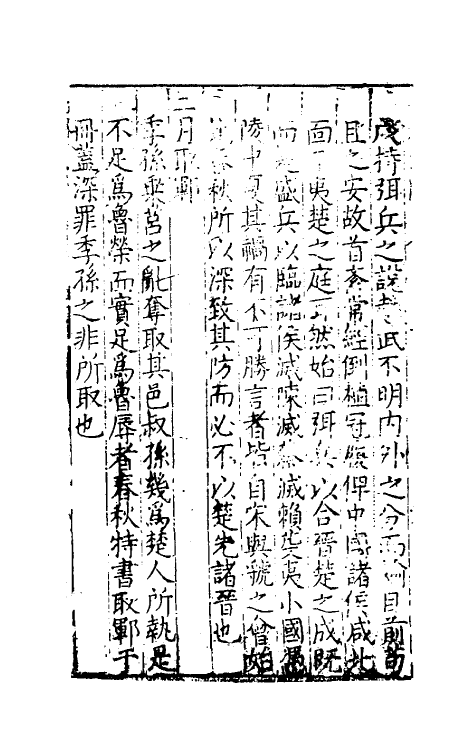 戌持弭兵之說趙武不明內外之分而徇目前苟
且之安故首紊常經倒植冠履俾中國諸侯咸北
面于夷楚之庭可然始曰弭兵以合晉楚之成既
而盛兵以臨諸侯滅陳滅蔡滅賴舉夷小國憑
陵中夏其禍有不可勝言者皆自宋與虢之會始
春秋所以深致其防而必不以楚先諸晉也
三月取鄆
季孫乘莒之亂奪取其邑叔孫幾爲楚人所執是
不足爲魯榮而實足爲魯辱者春秋特書取鄆于
冊蓋深罪季孫之非所取也